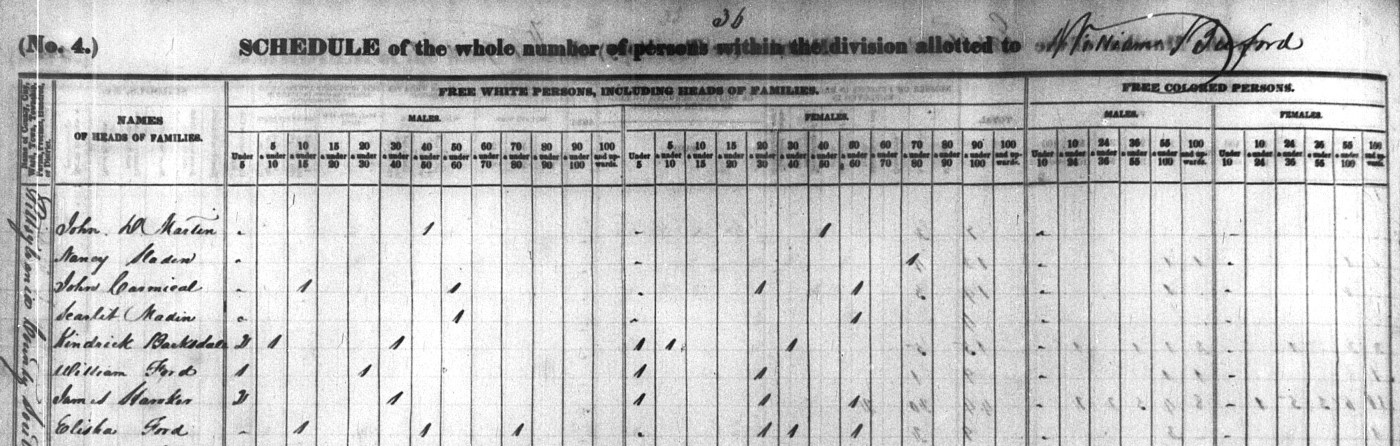 36
(No. 4.) SCHEDULE of the whole number of persons within the division allotted to William Buford
Name of County, City, Ward, Town, Township, Parish, Precinct, Hundred, or District.
NAMES OF HEADS OF FAMILIES.
FREE WHITE PERSONS, INCLUDING HEADS OF FAMILIES.
FREE COLORED PERSONS.
MALES. FEMALES. MALES. FEMALES.
Under 5 5 & under 10 10 & under 15 15 & under 20 20 & under 30 30 & under 40 40 & under 50 50 & under 60 60 & under 70 70 & under 80 80 & under 90 90 & under 100 100 and upwards. Under 5 5 & under 10 10 & under 15 15 & under 20 20 & under 30 30 & under 40 40 & under 50 50 & under 60 60 & under 70 70 & under 80 80 & under 90 90 & under 100 100 and upwards. Under 10 10 & under 24 24 & under 36 36 & under 55 55 & under 100 100 and upwards. Under 10 10 & under 24 24 & under 36 36 & under 55 55 & under 100 100
John Martin - 1 - 1 - -
Nancy - 1 - -
John Carmical - 1 1 - 1 1 - -
Scarlit Madin - 1 - 1 - -
Kindrick Barksdale 2 1 1 1 1 1 - -
William Ford 1 1 1 1 - -
James Hawker 2 1 1 1 1 - -
Elisha Ford - 1 1 1 - 1 1 1 - -